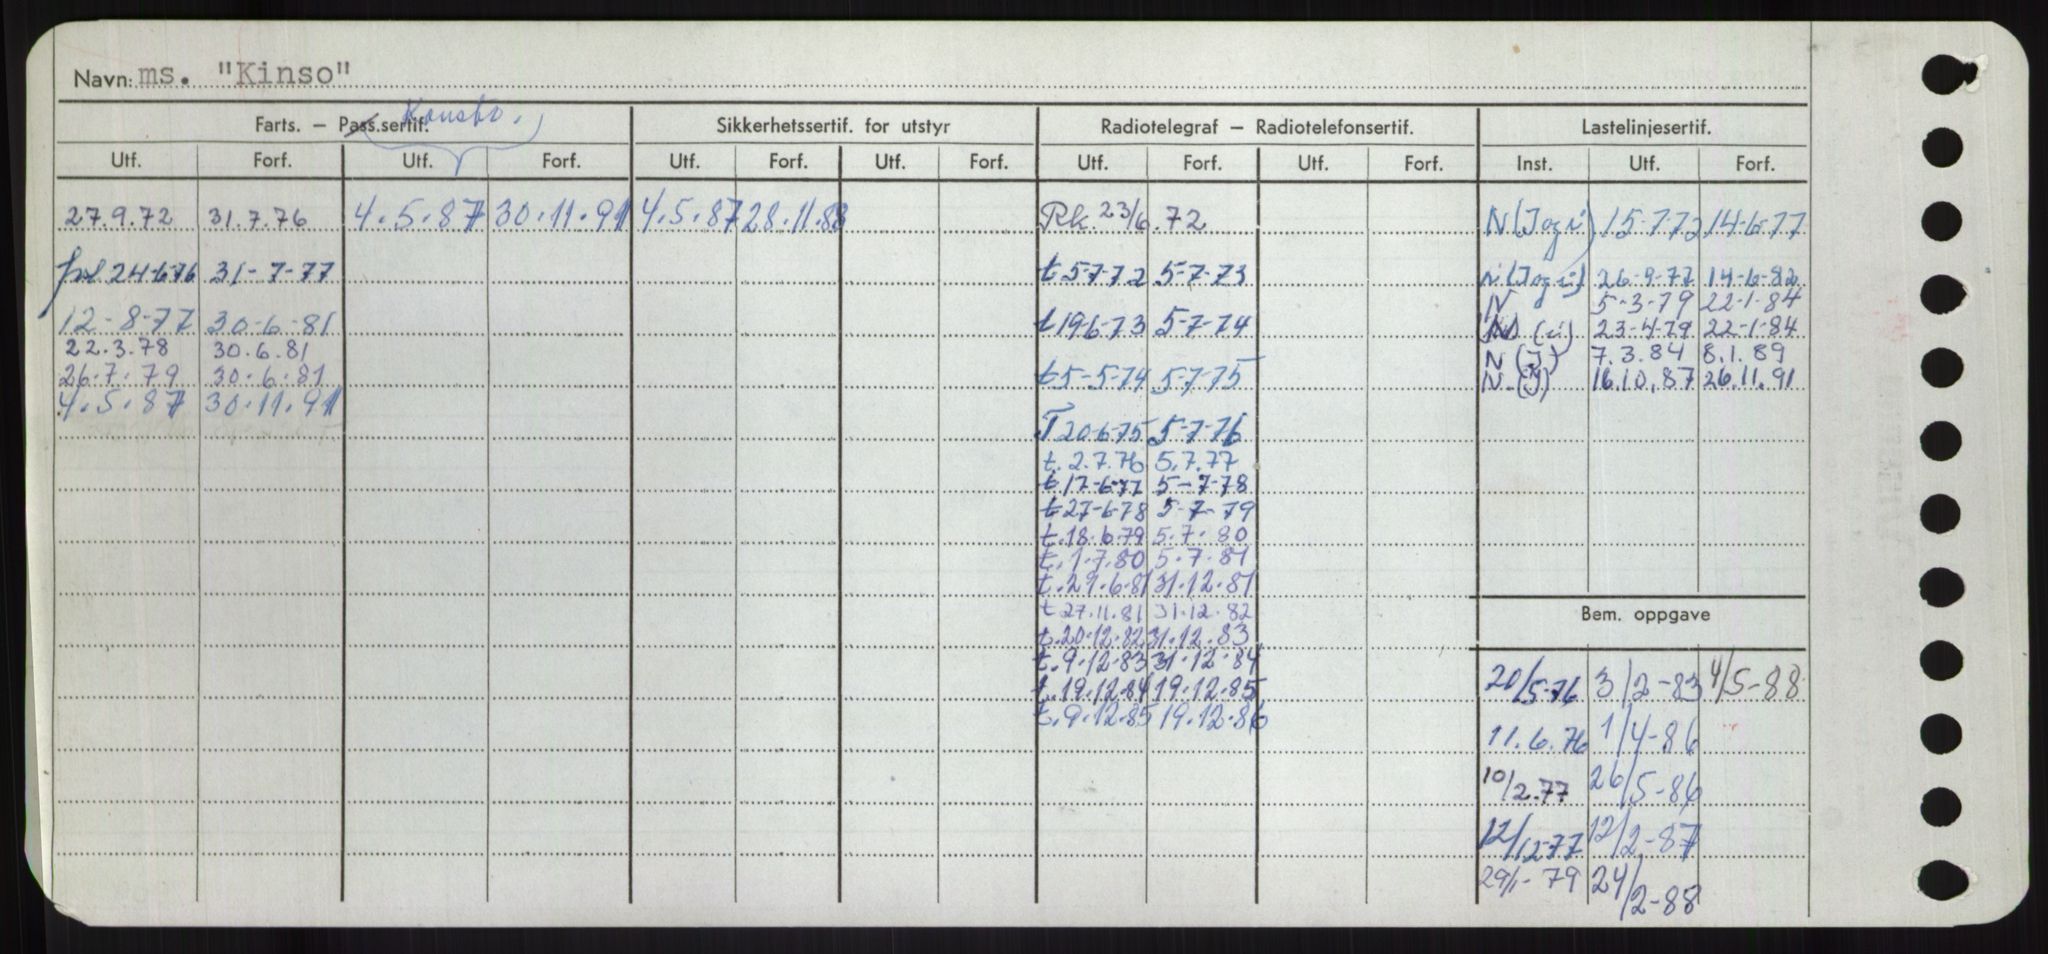 Navn: ms. "Kinso"
Konstr.
Farts. – Pass.sertif. Sikkerhetssertif. for utstyr Radiotelegraf – Radiotelefonsertif. Lastelinjesertif.
Utf. Forf. Utf. Forf. Utf. Forf. Utf. Forf. Utf. Forf. Utf. Forf. Inst. Utf. Forf.
27.9.72 31.7.76 4.5.87 30.11.91 4.5.87 28.11.88 Rk. 23/6.72 N (I og i) 15-7-72 14-6-77
frl. 24-6-76 31-7-77 t 5-7-72 5-7-73 N (I og i) 26-9-77 14-6-82
N 5-3-79 22-1-84
12-8-77 30-6-81 t 19-6-73 5-7-74 N (i) 23-4-79 22-1-84
22.3.78 30.6.81 N (I) 7.3.84 8.1.89
26.7.79 30.6.81 t 5-5-74 5-7-75 N (I) 16.10.87 26.11.91
4.5.87 30.11.91
T 20-6-75 5-7-76
t. 2.7.76 5.7.77
t. 17-6-77 5-7-78
t 27-6-78 5-7-79
t. 18.6.79 5.7.80
t. 1.7.80 5.7.81
t. 29.6.81 31.12.81
t 27.11.81 31.12.82
Bem. oppgave
t. 20.12.82 31.12.83
t. 9.12.83 31.12.84
t. 19.12.84 19.12.85 20/5-76 3/2-83 4/5-88
t. 9.12.85 19.12.86
11.6.76 1/4-86
10/2.77 26/5-86
12/12-77 12/2-87
29/1-79 24/2-88